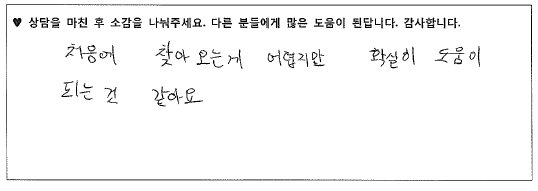 ♥ 상담을 마친 후 소감을 나눠주세요. 다른 분들에게 많은 도움이 된답니다. 감사합니다.
처음에 찾아 오는게 어렵지만 확실히 도움이
되는 건 같아요